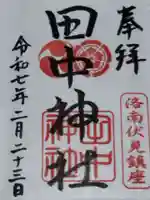 奉拝
洛南伏見鎮座
田中神社
令和七年二月二十三日